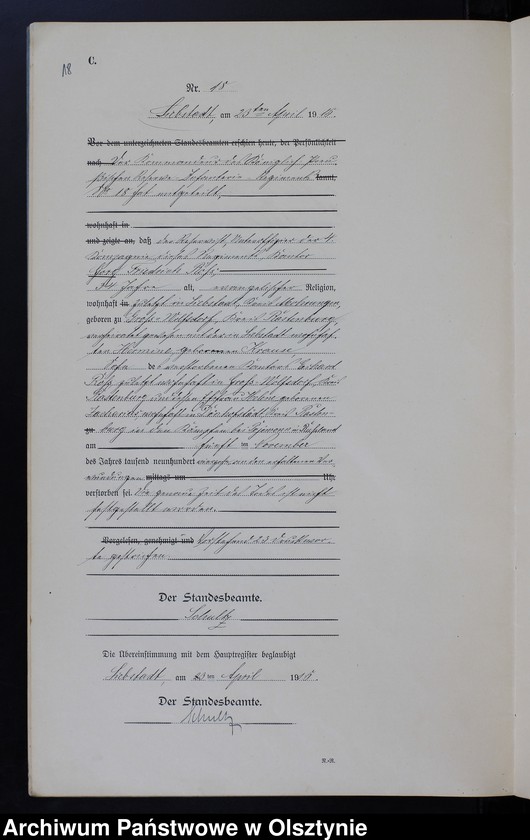 18
C.
Nr. 18
Liebstadt, am 23ten April 1915.
Vor dem unterzeichneten Standesbeamten erschien heute, der Persönlichkeit
nach Der Kommandeur des Königlich Preu-
ßischen Reserve Infanterie Regiments kannt,
Nr 18 hat mitgeteilt,
wohnhaft in
und zeigte an, daß der Reservist, Unteroffizier der 4.
Kompagnie dieses Regiments, Kantor
Friedrich Röß,
Jahre alt, evangelischer Religion,
wohnhaft in zuletzt in Liebstadt, Kreis Mohrungen,
geboren zu Groß-Wolfsdorf, Kreis Rastenburg,
verheiratet gewesen mit der in Liebstadt wohnhaf-
ten Hermine, geborenen Krause,
Sohn des verstorbenen Kantors
Röß zuletzt wohnhaft in Groß-Wolfsdorf, Kreis
Rastenburg und dessen Ehefrau geborenen
wohnhaft in Dönhofstädt Kreis Rasten-
zu burg in den Kämpfen bei in Rußland
am fünften November
des Jahres tausend neunhundert vierzehn, an den erhaltenen Ver-
wundungen mittags um Uhr
verstorben sei. Die genaue Zeit des Todes ist nicht
festgestellt worden.
Vorgelesen, genehmigt und Vorstehend 23 Druckwor-
te gestrichen.
Der Standesbeamte.
Schultz
Die Übereinstimmung mit dem Hauptregister beglaubigt
Liebstadt, am 23ten April 1915.
Der Standesbeamte.
Schultz
R.-R.
Archiwum Państwowe w Olsztynie